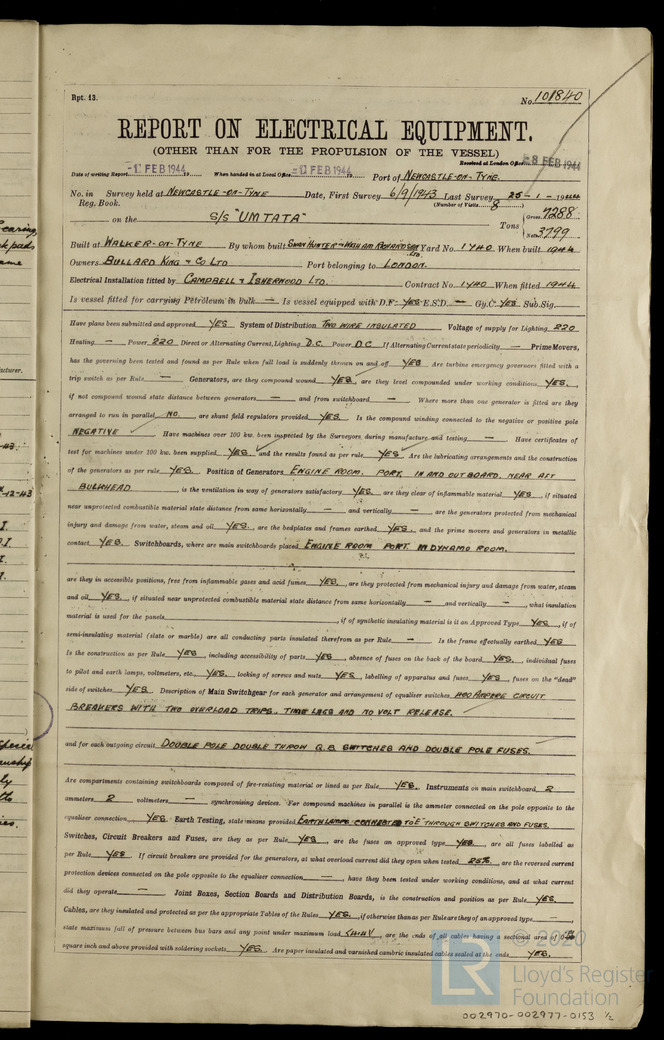 Rpt. 13.
No. 101840
REPORT ON ELECTRICAL EQUIPMENT.
(OTHER THAN FOR THE PROPULSION OF THE VESSEL)
Received at London Office 8 FEB 1944
Date of writing Report -1 FEB 1944 19 When handed in at Local Office -1 FEB 1944 19 Port of NEWCASTLE-ON-TYNE.
No. in Survey held at NEWCASTLE-ON-TYNE Date, First Survey 6/9/1943 Last Survey 25-1-1944
Reg. Book. (Number of Visits 8)
on the S/S "UMTATA" Tons Gross 7288 Nett 3799
Built at WALKER-ON-TYNE By whom built SWAN HUNTER & WIGHAM RICHARDSON LTD. Yard No. 1740 When built 1944
Owners BULLARD KING & CO LTD Port belonging to LONDON.
Electrical Installation fitted by CAMPBELL & ISHERWOOD LTD. Contract No. 1740 When fitted 1944
Is vessel fitted for carrying Petroleum in bulk — Is vessel equipped with D.F. YES E.S.D. — Gy.C. YES Sub.Sig.
Have plans been submitted and approved YES System of Distribution TWO WIRE INSULATED Voltage of supply for Lighting 220
Heating — Power 220 Direct or Alternating Current, Lighting D.C. Power D.C If Alternating Current state periodicity — Prime Movers,
has the governing been tested and found as per Rule when full load is suddenly thrown on and off YES Are turbine emergency governors fitted with a
trip switch as per Rule — Generators, are they compound wound YES, are they level compounded under working conditions YES,
if not compound wound state distance between generators — and from switchboard — Where more than one generator is fitted are they
arranged to run in parallel NO, are shunt field regulators provided YES. Is the compound winding connected to the negative or positive pole
NEGATIVE Have machines over 100 kw. been inspected by the Surveyors during manufacture and testing — Have certificates of
test for machines under 100 kw. been supplied YES and the results found as per rule YES Are the lubricating arrangements and the construction
of the generators as per rule YES. Position of Generators ENGINE ROOM, PORT, IN AND OUTBOARD, NEAR AFT
BULKHEAD, is the ventilation in way of generators satisfactory YES, are they clear of inflammable material YES, if situated
near unprotected combustible material state distance from same horizontally — and vertically —, are the generators protected from mechanical
injury and damage from water, steam and oil YES, are the bedplates and frames earthed YES, and the prime movers and generators in metallic
contact YES. Switchboards, where are main switchboards placed ENGINE ROOM PORT. IN DYNAMO ROOM.
are they in accessible positions, free from inflammable gases and acid fumes YES, are they protected from mechanical injury and damage from water, steam
and oil YES, if situated near unprotected combustible material state distance from same horizontally — and vertically —, what insulation
material is used for the panels , if of synthetic insulating material is it an Approved Type YES, if of
semi-insulating material (slate or marble) are all conducting parts insulated therefrom as per Rule — Is the frame effectually earthed YES
Is the construction as per Rule YES, including accessibility of parts YES, absence of fuses on the back of the board YES, individual fuses
to pilot and earth lamps, voltmeters, etc. YES locking of screws and nuts YES, labelling of apparatus and fuses YES, fuses on the "dead"
side of switches YES. Description of Main Switchgear for each generator and arrangement of equaliser switches 400 AMPERE CIRCUIT
BREAKERS WITH TWO OVERLOAD TRIPS, TIME LAGS AND NO VOLT RELEASE.
and for each outgoing circuit DOUBLE POLE DOUBLE THROW Q.B. SWITCHES AND DOUBLE POLE FUSES.
Are compartments containing switchboards composed of fire-resisting material or lined as per Rule YES. Instruments on main switchboard 2
ammeters 2 voltmeters — synchronising devices. For compound machines in parallel is the ammeter connected on the pole opposite to the
equaliser connection YES. Earth Testing, state means provided EARTH LAMPS CONNECTED TO "E" THROUGH SWITCHES AND FUSES.
Switches, Circuit Breakers and Fuses, are they as per Rule YES, are the fuses an approved type YES, are all fuses labelled as
per Rule YES If circuit breakers are provided for the generators, at what overload current did they open when tested 25%, are the reversed current
protection devices connected on the pole opposite to the equaliser connection —, have they been tested under working conditions, and at what current
did they operate — Joint Boxes, Section Boards and Distribution Boards, is the construction and position as per Rule YES.
Cables, are they insulated and protected as per the appropriate Tables of the Rules YES, if otherwise than as per Rule are they of an approved type —
state maximum fall of pressure between bus bars and any point under maximum load, are the ends of all cables having a sectional area of
square inch and above provided with soldering sockets YES. Are paper insulated and varnished cambric insulated cables sealed at the ends YES.
© 2020
LR
Lloyd's Register
Foundation
002970-002977-0153 1/2